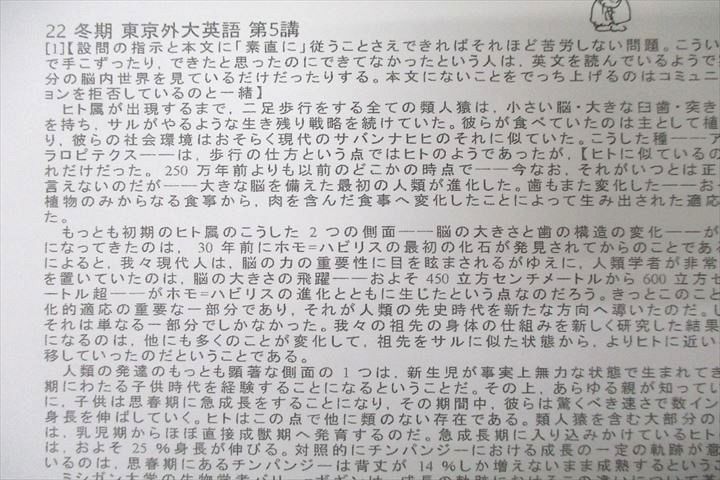 22 冬期 東京外大英語 第5講
[1]【設問の指示と本文に「素直に」従うことさえできればそれほど苦労しない問題。こうい
で手こずったり、できたと思ったのにできてなかったという人は、英文を読んでいるようで
分の脳内世界を見ているだけだったりする。本文にないことをでっち上げるのはコミュニ
ョンを拒否しているのと一緒】
ヒト属が出現するまで、二足歩行をする全ての類人猿は、小さい脳・大きな臼歯・突き
を持ち、サルがやるような生き残り戦略を続けていた。彼らが食べていたのは主として植
り、彼らの社会環境はおそらく現代のサバンナヒヒのそれに似ていた。こうした種――ア
ラロピテクス――は、歩行の仕方という点ではヒトのようであったが、【ヒトに似ているの
れだけだった。 250 万年前よりも以前のどこかの時点で――今なお、それがいつとは正
言えないのだが――大きな脳を備えた最初の人類が進化した。歯もまた変化した――お
植物のみからなる食事から、肉を含んだ食事へ変化したことによって生み出された適応
た。
もっとも初期のヒト属のこうした 2 つの側面――脳の大きさと歯の構造の変化――が
になってきたのは、 30 年前にホモ=ハビリスの最初の化石が発見されてからのことであ
によると、我々現代人は、脳の力の重要性に目を眩まされるがゆえに、人類学者が非常
を置いていたのは、脳の大きさの飛躍――およそ 450 立方センチメートルから 600 立方セ
ートル超――がホモ=ハビリスの進化とともに生じたという点なのだろう。きっとこのこと
化的適応の重要な一部分であり、それが人類の先史時代を新たな方向へ導いたのだ。し
それは単なる一部分でしかなかった。我々の祖先の身体の仕組みを新しく研究した結果
になるのは、他にも多くのことが変化して、祖先をサルに似た状態から、よりヒトに近い
移していったのだということである。
人類の発達のもっとも顕著な側面の 1 つは、新生児が事実上無力な状態で生まれてき
期にわたる子供時代を経験することになるということだ。その上、あらゆる親が知ってい
に、子供は思春期に急成長をすることになり、その期間中、彼らは驚くべき速さで数イン
身長を伸ばしていく。ヒトはこの点で他に類のない存在である。類人猿を含む大部分の
は、乳児期からほぼ直接成獣期へ発育するのだ。急成長期に入り込みかけているヒト
は、およそ 25 %身長が伸びる。対照的にチンパンジーにおける成長の一定の軌跡が意
いるのは、思春期にあるチンパンジーは背丈が 14 %しか増えないまま成熟するという